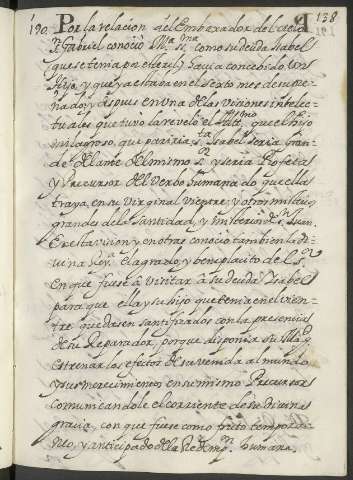 138
190. Por la relacion del Embaxador del cielo
Sn. Gabriel conoció Ma. Sma. como su deuda Isabel
(que se tenia por esteril) havia concebido un
Hijo, y que ya estava en el sexto mes de su pre-
ñado, y despues en una de las visiones intelec-
tuales que tuvo la reveló el Altmo. que el hijo
milagroso, que pariria Sta. Isabel seria gran-
de delante del mismo Sr. y seria Profeta
y Precursor del Verbo humanado que ella
traya, en su Virginal Vientre, y otros misterios
grandes de la santidad, y misterios de Sn. Juan.
En esta vision y en otras conoció tambien la Di-
vina Reyna el agrado, y beneplacito de el Sr.
en que fuese á visitar á su deuda Isabel
para que ella y su hijo que tenia en el vien-
tre quedasen santificados con la presencia
de su Reparador, porque disponia su Magd.
estrenar los efectos de su venida al mundo
y sus merecimientos en su mismo Precursor
comunicandole el corriente de su divina
gracia, con que fuese como fruto tempora-
neo, y anticipado de la Redempn. humana.